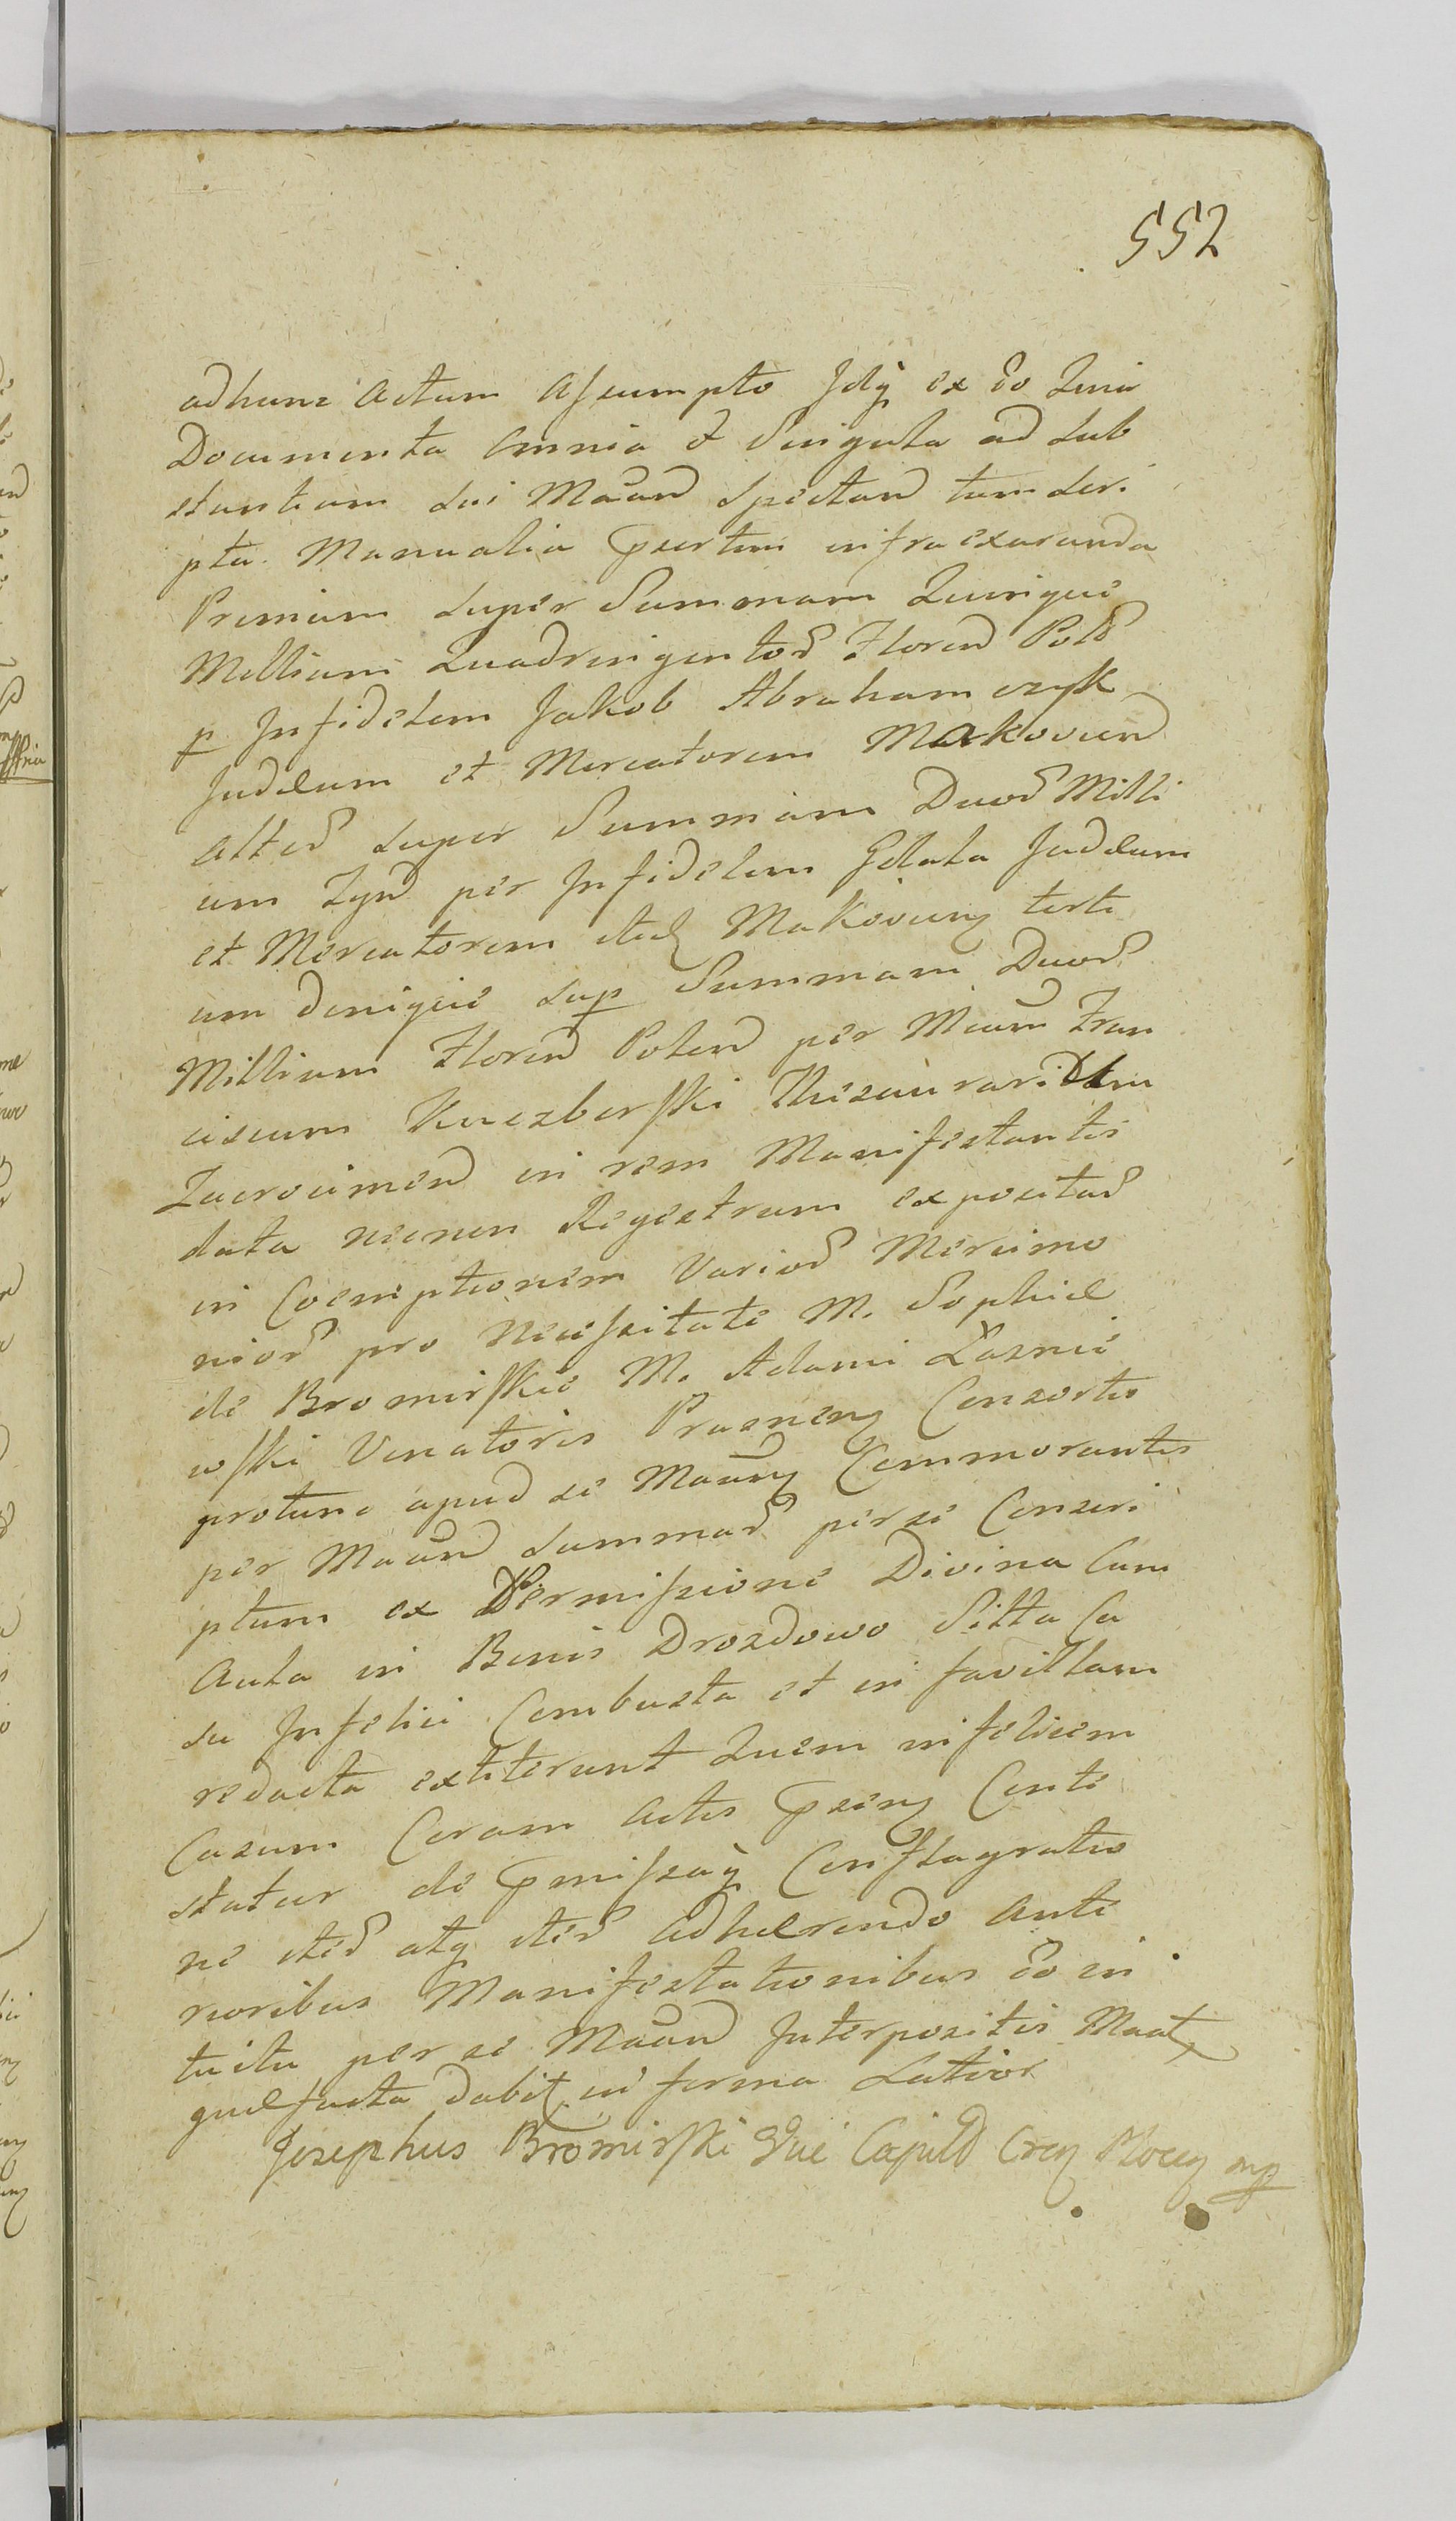 552
adhunc Actum Assumpto Jdq ex Eo Quia
Documenta Omnia et Singula ad Sub
stantiam sui Maand Spectand tum scri
pta Manualia psertim infra exaranda
Primum super Summam Quinque
Millium Quadringentor Floren Pol
p Infidelem Jakob Abrahamczyk
Judæum et Mercatorem Makovien
alter super Summam Duor Milli
um per Infidelem Judæum
et Mercatorem Makovien terti
um denique sup Summam Duor
Millium Floren Polon per Mcum Fran
ciscum Thesaurarium
Zacrocimen in rem Manifestantis
data necnon Regestrum expositar
in Coemptionem Varior Mercimo
nior pro Necessitate M. Sophiæ
de Bromirskie M. Adami Łasnie
wski Venatoris Prasnen Consortis
protunc apud se Commorantis
per Maand Summar per se Conscri
ptum ex Permissione Divina Cum
Aula in Bonis Drozdowo Sitta Ca
su Infelici Combusta et in favillam
redacta extiterunt Quem infelicem
Casum Coram Actis psen Conte
statur de pmissaq Conflagratio
ne iter atq iter adhærendo Ante
rioribus Manifestationibus Eo in
tuitu per se Maand Interpositis
quæ facta dabit in forma Latior
Josephus Bromirski Vice Capit Cren Plocen mp